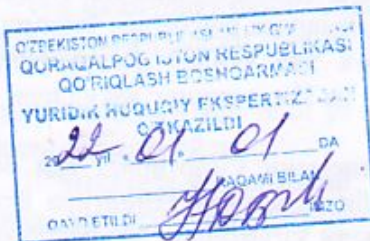 O'ZBEKISTON RESPUBLIKASI
QORAQALPOG'ISTON RESPUBLIKASI
QO'RIQLASH BOSHQARMASI
YURIDIK HUQUQIY EKSPERTIZADAN
O'TKAZILDI
2022 yil "01" 01 DA
RAQAMI BILAN
QAYD ETILDI IMZO